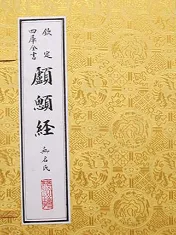 欽定
四庫全書
顱顖経
無名氏